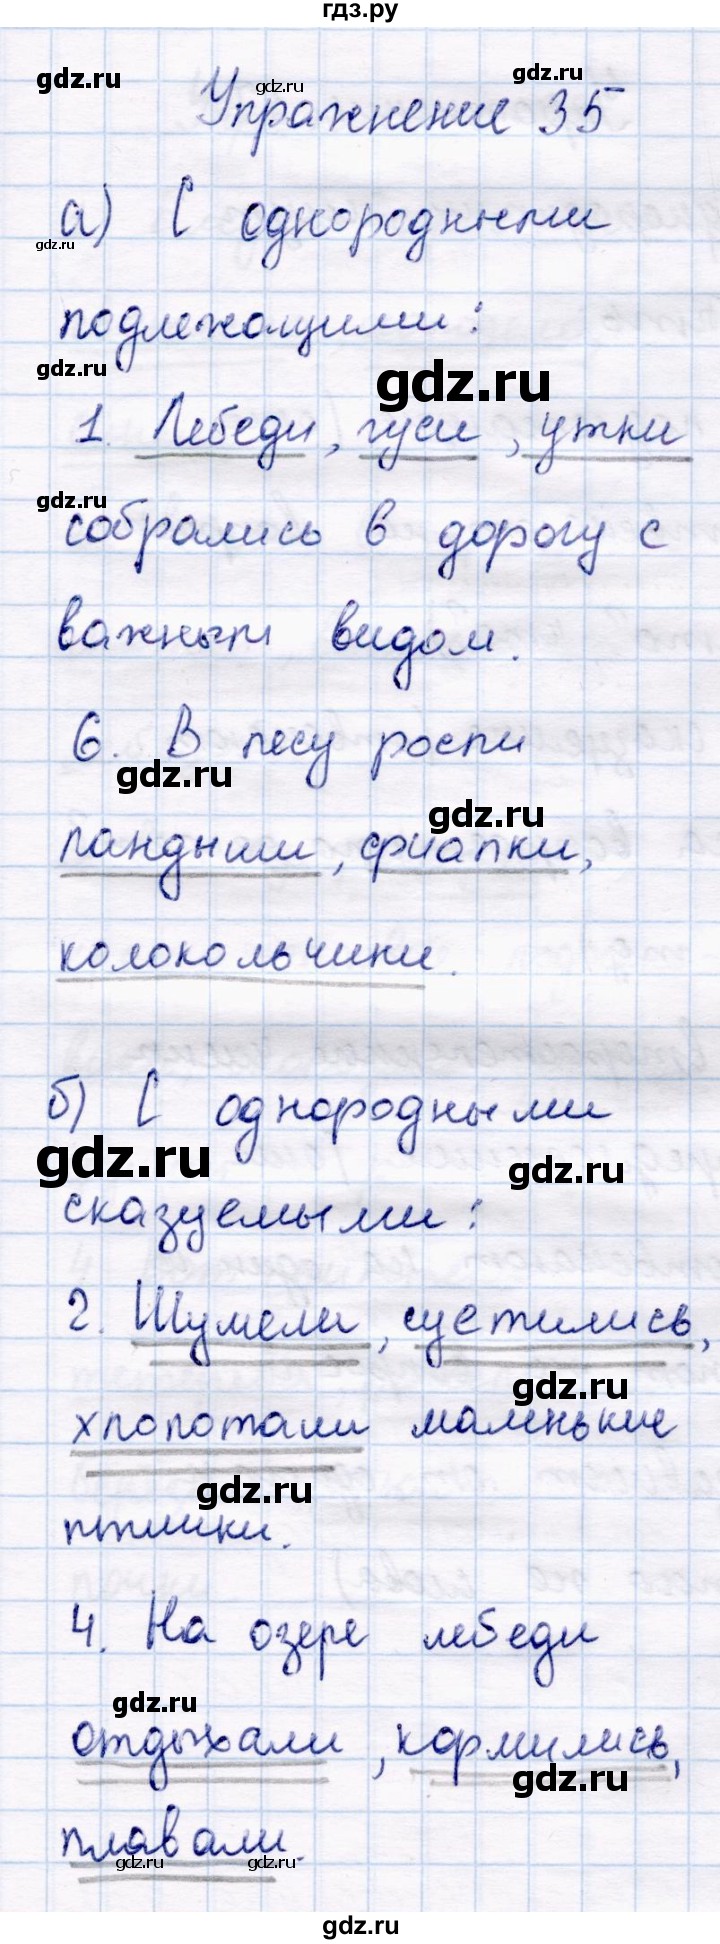 гдз.ру
gdz.ru gdz.ru gdz.ru
Упражнение 35
а) С однородными
gdz.ru
подлежащими:
gdz.ru gdz.ru
1. Лебеди, гуси, утки
gdz.ru
собрались в дорогу с
важным видом.
6. В лесу росли
gdz.ru gdz.ru
ландыши, фиалки,
колокольчики.
б) С однородными
gdz.ru gdz.ru
сказуемыми:
2. Шумели, суетились,
gdz.ru
хлопотали маленькие
gdz.ru
птички.
4. На озере лебеди
gdz.ru
отдыхали, кормились,
gdz.ru
плавали.
gdz.ru gdz.ru
gdz.ru